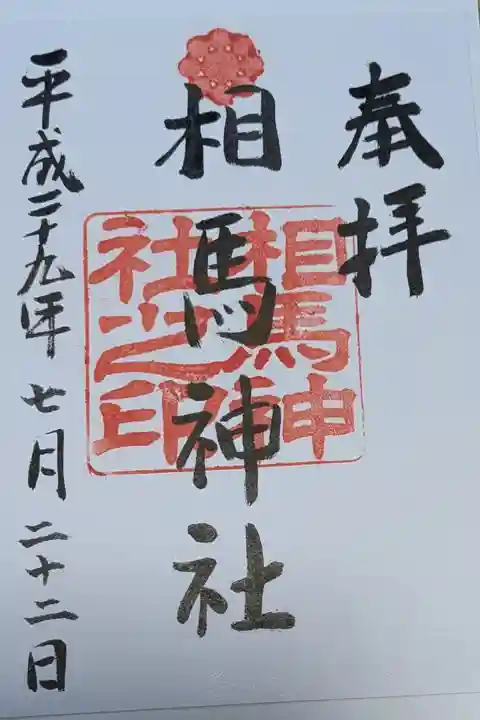 奉拝
相馬神社
相馬神
社之印
平成二十九年七月二十二日